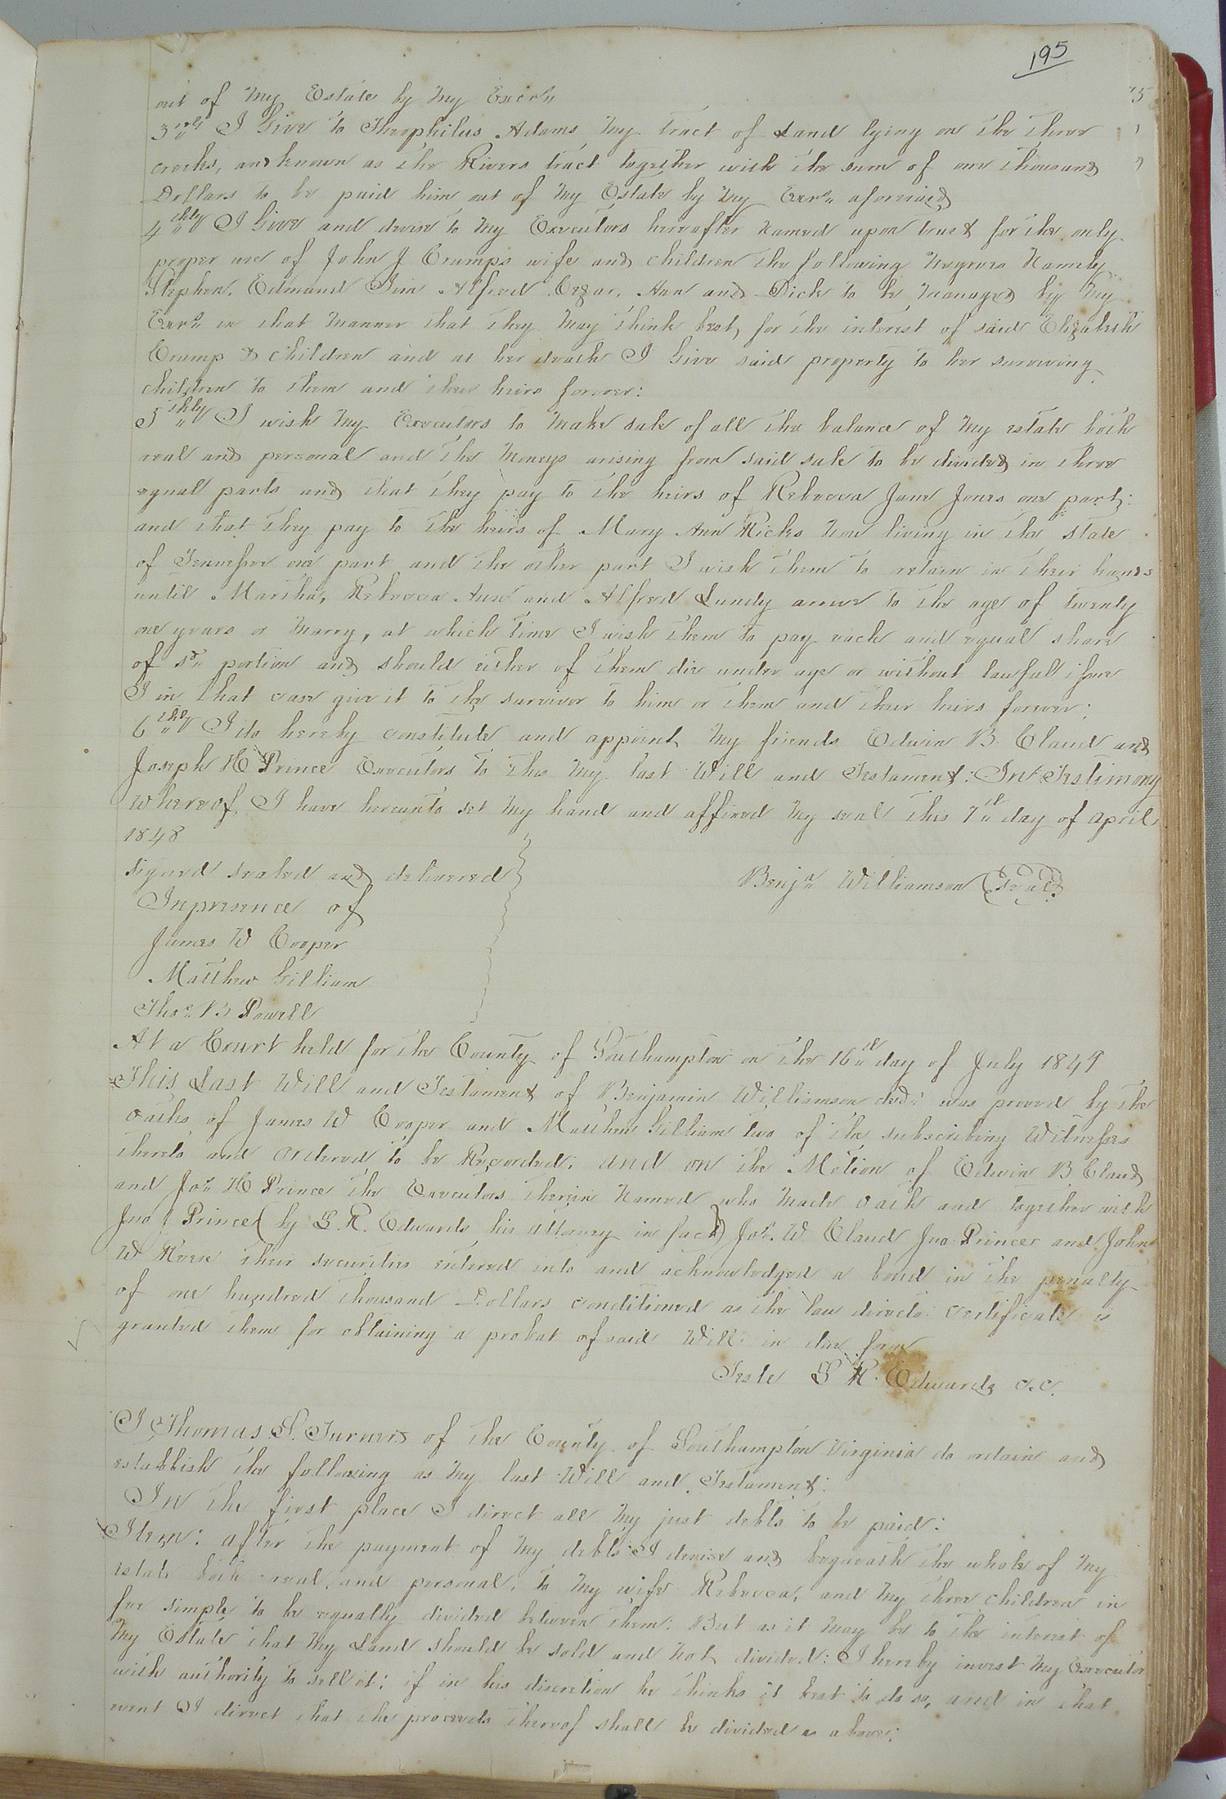 195
out of My Estate by My Exec.rs
3rdly I Give to Theophilus Adams My tract of Land lying on the three
creeks, and known as the Rivers tract together with the sum of one thousand
Dollars to be paid him out of My Estate by My Exrs aforesaid
4thly I Give and devise to My Executors hereafter named upon trust for the only
proper use of John J Crumps wife and children the following Negroes Namely
Stephen, Edmund Alfred Cezar, Ann and Dick to be Managed by My
Exrs in that Manner that they May think best, for the interest of said Elizabeth
Crump & children and at her death I Give said property to her surviving
children to them and their heirs forever:
5thly I wish My Executors to Make sale of all the balance of My estate both
real and personal and the Moneys arising from said sale to be divided in three
equal parts and that they pay to the heirs of Rebecca Jane Jones one part:
and that they pay to the heirs of Mary Ann Ricks Now living in the state
of Tennessee one part and the other part I wish them to retain in their hands
until Martha, Rebecca Ann and Alfred Lundy arrive to the age of twenty
one years or Marry, at which time I wish them to pay each and equal share
of sd. portion and should either of them die under age or without lawfull issue
I in that case give it to the survivor to him or them and their heirs forever:
6thly I do hereby constitute and appoint My friends Edwin B. Claud and
Joseph H Prince Executors to this My last Will and Testament: In Testimony
whereof I have hereunto set My hand and affixed My seal this 7th day of April
1848
signed sealed and delivered
Benjn Williamson (Seal)
Inpresence of
James W Cooper
Matthew Gilliam
Thos. B Powell
At a Court held for the County of Southampton on the 16th day of July 1849
This Last Will and Testament of Benjamin Williamson decd. was proved by the
oaths of James W Cooper and Matthew Gilliam two of the subscribing Witnesses
thereto and ordered to be Recorded. and on the Motion of Edwin B Claud
and Jos. H Prince the Executors therein Named who Made oath and together with
Jno J Prince (by L. R. Edwards his attorney in fact) Jos. W Claud Jno Prince and John
W their securities entered into and acknowledged a bond in the penalty
of one hundred thousand Dollars conditioned as the law directs certificate is
granted them for obtaining a probat of said Will in due form
Teste L R. Edwards c.c.
I Thomas Turner of the County of Southampton Virginia do ordain and
establish the following as My last Will and Testament:
In the first place I direct all My just debts to be paid:
Item: after the payment of My debts I devise and bequeath the whole of My
estate both real, and personal, to My wife Rebecca, and My three children in
fee simple to be equally divided between them. But as it May be to the interest of
My Estate that My Land should be sold and not divided: I hereby invest My Executor
with authority to sell it; if in his discretion he thinks it best to do so, and in that
event I direct that the proceeds thereof shall be divided as above: